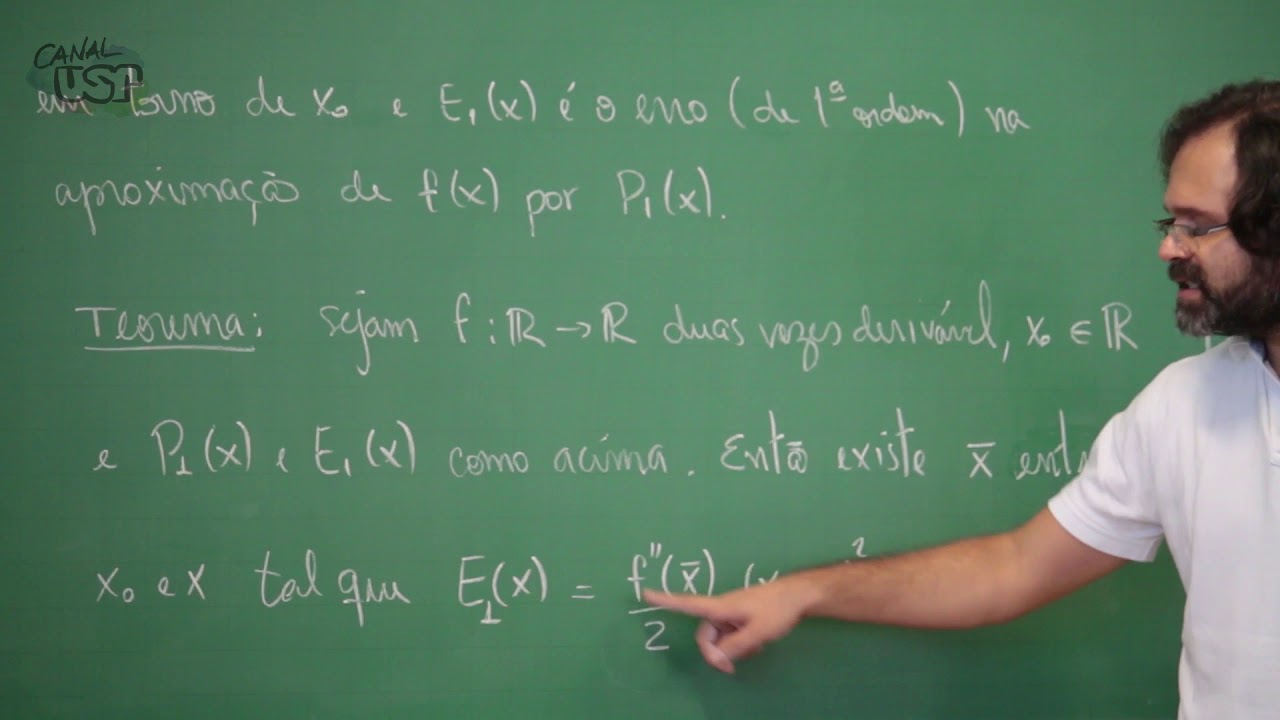 CANAL
USP
em torno de x₀ e E₁(x) é o erro (de 1ª ordem) na
aproximação de f(x) por P₁(x).
Teorema: sejam f: ℝ → ℝ duas vezes derivável, x₀ ∈ ℝ
e P₁(x) e E₁(x) como acima. Então existe x̄ ent
x₀ e x tal que E₁(x) = f''(x̄)/2 (x 2